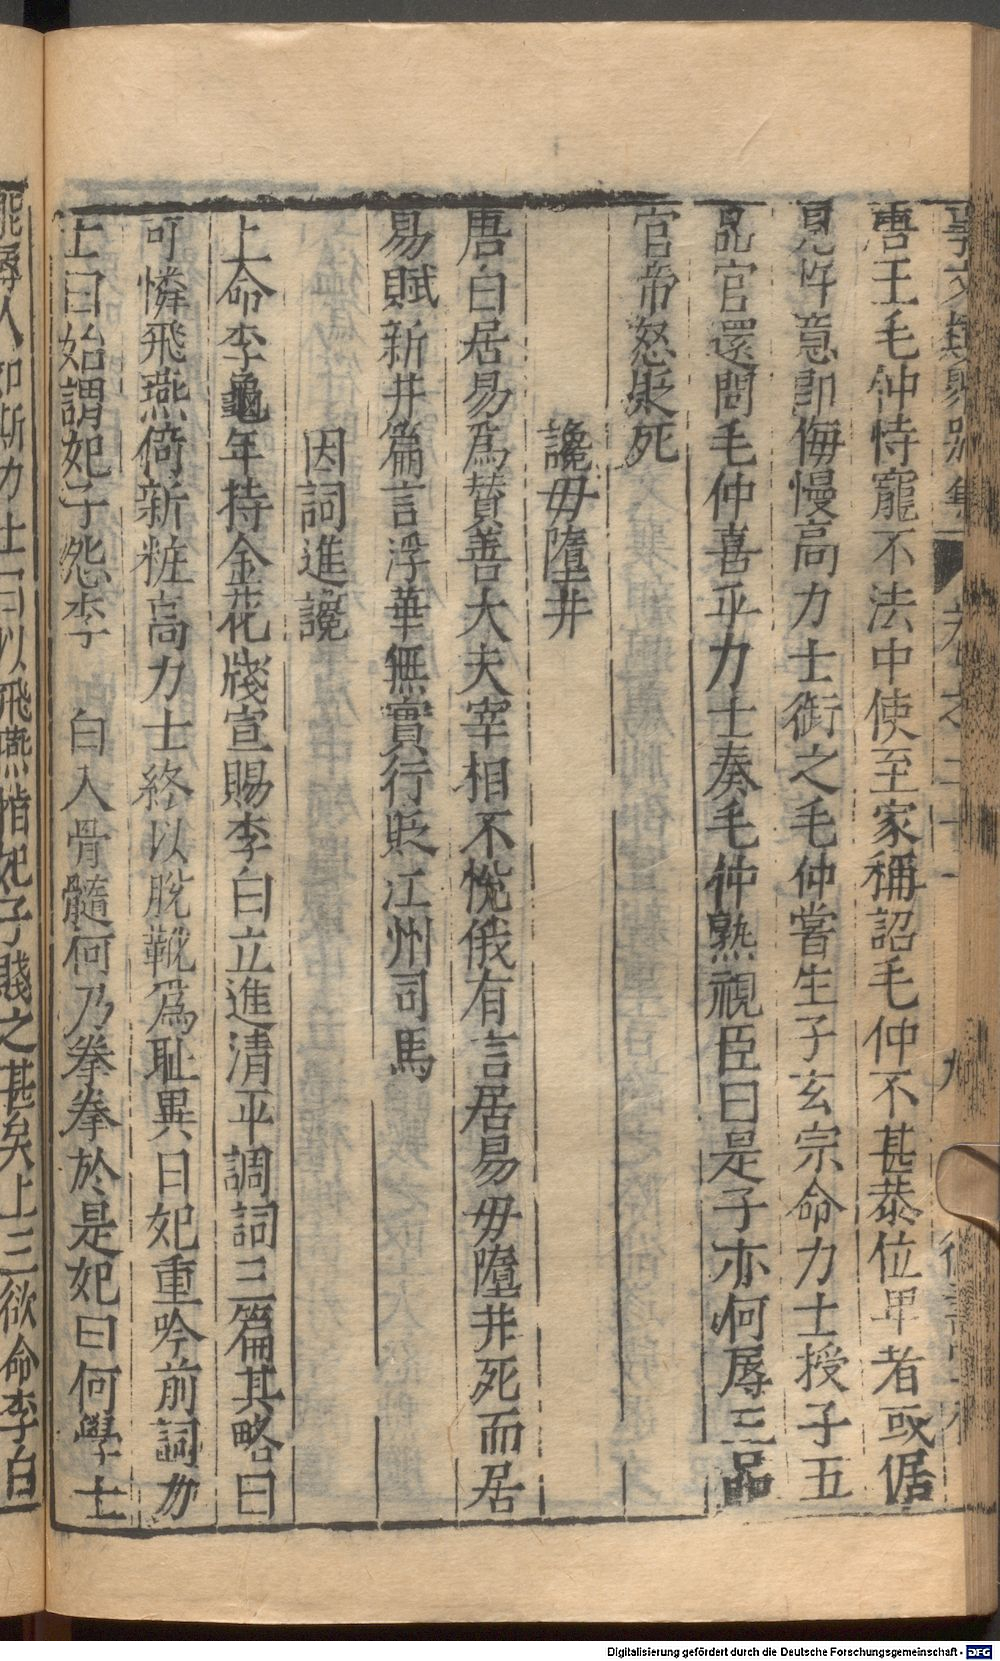 事文類聚別集 卷之二十一 九
唐王毛仲恃寵不法中使至家稱詔毛仲不甚恭位卑者或倨
見迕意即侮慢高力士銜之毛仲嘗生子玄宗命力士授子五
品官還問毛仲喜乎力士奏毛仲熟視臣曰是子亦何辱三品
官帝怒貶死
讒毋墮井
唐白居易爲贊善大夫宰相不悅俄有言居易毋墮井死而居
易賦新井篇言浮華無實行貶江州司馬
因詞進讒
上命李龜年持金花牋宣賜李白立進清平調詞三篇其略曰
可憐飛燕倚新粧高力士終以脫靴爲耻異日妃重吟前詞力
士曰始謂妃子怨李白入骨髓何乃拳拳於是妃曰何學士
能辱人如斯力士曰以飛燕指妃子賤之甚矣上三欲命李白
Digitalisierung gefördert durch die Deutsche Forschungsgemeinschaft - DFG